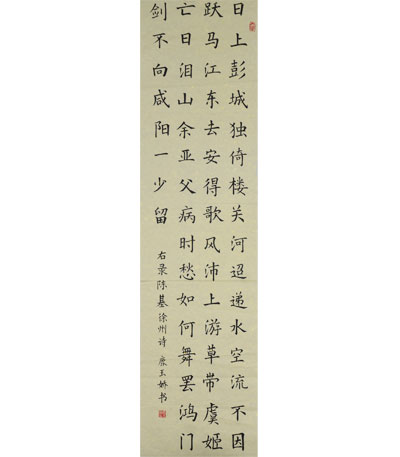 日上彭城独倚楼关河迢递水空流不因
跃马江东去安得歌风沛上游草带虞姬
亡日泪山余亚父病时愁如何舞罢鸿门
剑不向咸阳一少留
右录陈基徐州诗 书